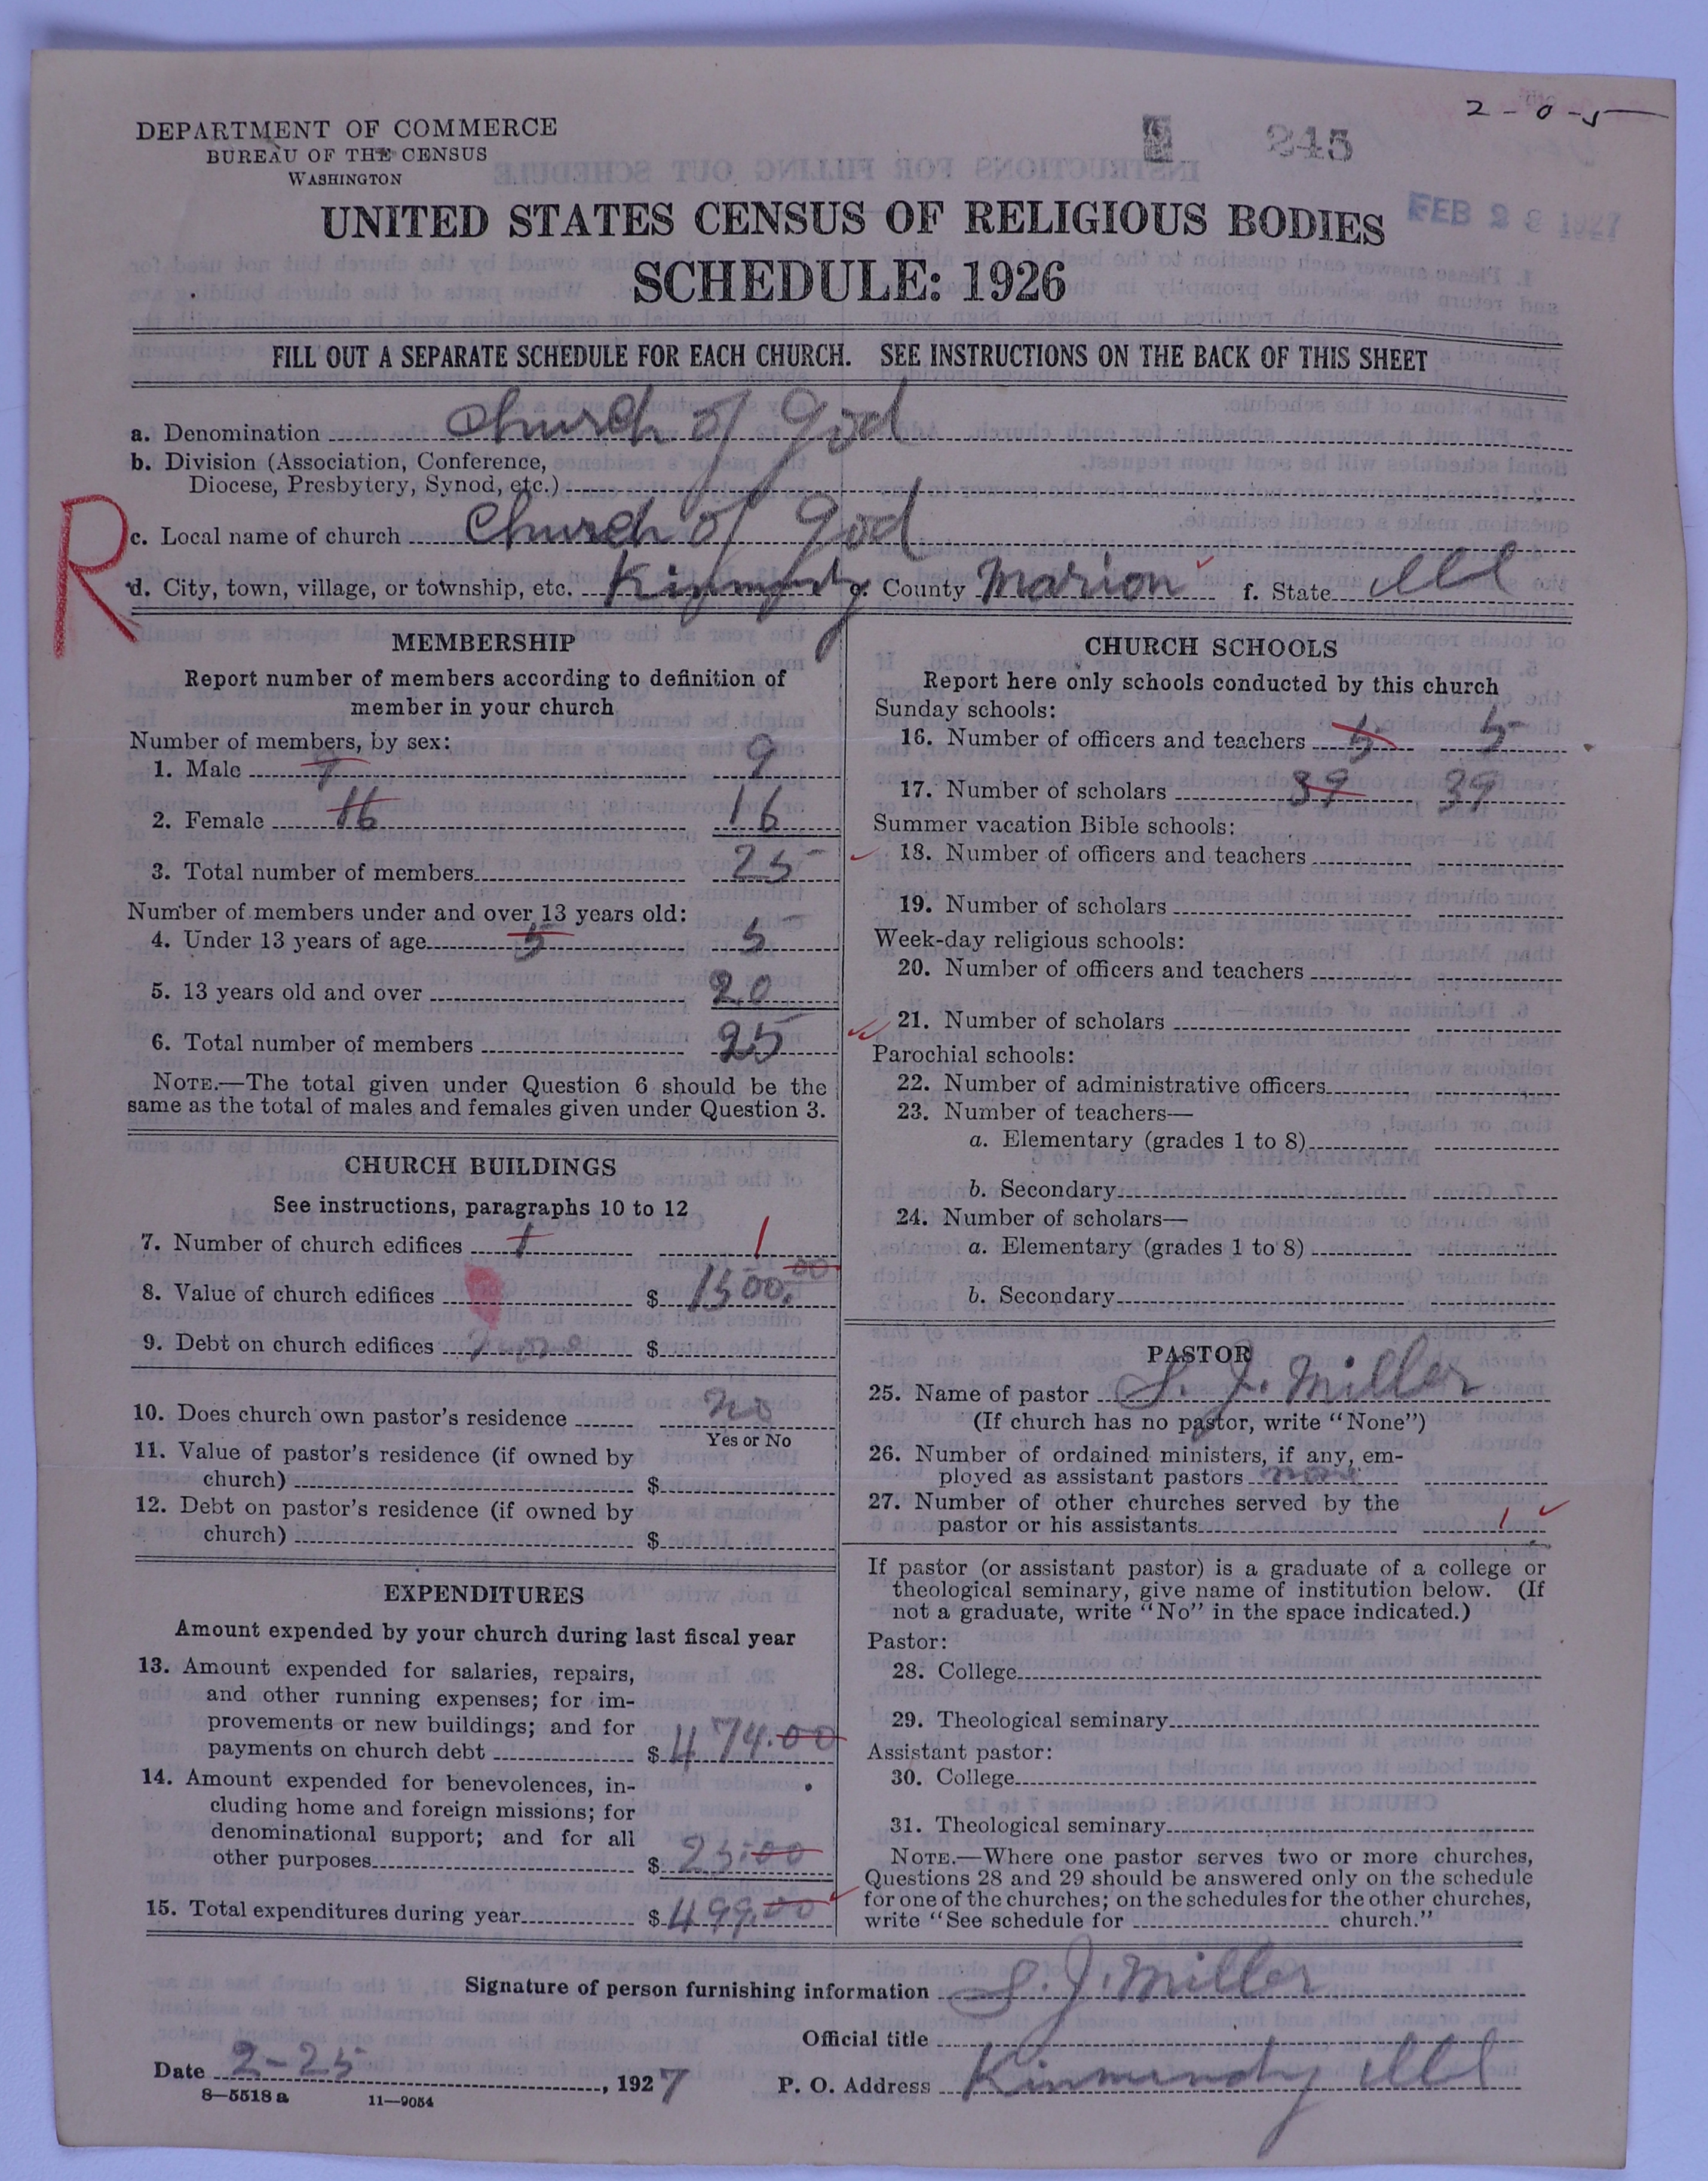 2-0-5
DEPARTMENT OF COMMERCE
BUREAU OF THE CENSUS
WASHINGTON
245
FEB 28 1927
UNITED STATES CENSUS OF RELIGIOUS BODIES
SCHEDULE: 1926
FILL OUT A SEPARATE SCHEDULE FOR EACH CHURCH. SEE INSTRUCTIONS ON THE BACK OF THIS SHEET
a. Denomination Church of God
b. Division (Association, Conference,
Diocese, Presbytery, Synod, etc.)
R
c. Local name of church Church of God
d. City, town, village, or township, etc. Kinmundy e. County Marion f. State Ill
MEMBERSHIP
Report number of members according to definition of
member in your church
Number of members, by sex:
1. Male 9 9
2. Female 16 16
3. Total number of members 25
Number of members under and over 13 years old:
4. Under 13 years of age 5 5
5. 13 years old and over 20
6. Total number of members 25
NOTE.—The total given under Question 6 should be the
same as the total of males and females given under Question 3.
CHURCH BUILDINGS
See instructions, paragraphs 10 to 12
7. Number of church edifices 1 1
8. Value of church edifices $ 1500.00
9. Debt on church edifices none $
10. Does church own pastor's residence no
Yes or No
11. Value of pastor's residence (if owned by
church) $
12. Debt on pastor's residence (if owned by
church) $
EXPENDITURES
Amount expended by your church during last fiscal year
13. Amount expended for salaries, repairs,
and other running expenses; for im-
provements or new buildings; and for
payments on church debt $ 474.00
14. Amount expended for benevolences, in-
cluding home and foreign missions; for
denominational support; and for all
other purposes $ 25.00
15. Total expenditures during year $ 499.00
CHURCH SCHOOLS
Report here only schools conducted by this church
Sunday schools:
16. Number of officers and teachers 5 5
17. Number of scholars 39 39
Summer vacation Bible schools:
18. Number of officers and teachers
19. Number of scholars
Week-day religious schools:
20. Number of officers and teachers
21. Number of scholars
Parochial schools:
22. Number of administrative officers
23. Number of teachers—
a. Elementary (grades 1 to 8)
b. Secondary
24. Number of scholars—
a. Elementary (grades 1 to 8)
b. Secondary
PASTOR
25. Name of pastor S. J. Miller
(If church has no pastor, write "None")
26. Number of ordained ministers, if any, em-
ployed as assistant pastors none
27. Number of other churches served by the
pastor or his assistants 1
If pastor (or assistant pastor) is a graduate of a college or
theological seminary, give name of institution below. (If
not a graduate, write "No" in the space indicated.)
Pastor:
28. College
29. Theological seminary
Assistant pastor:
30. College
31. Theological seminary
NOTE.—Where one pastor serves two or more churches,
Questions 28 and 29 should be answered only on the schedule
for one of the churches; on the schedules for the other churches,
write "See schedule for church."
Signature of person furnishing information S. J. Miller
Official title
Date 2-25, 1927 P. O. Address Kinmundy Ill
8—5518 a 11—9054